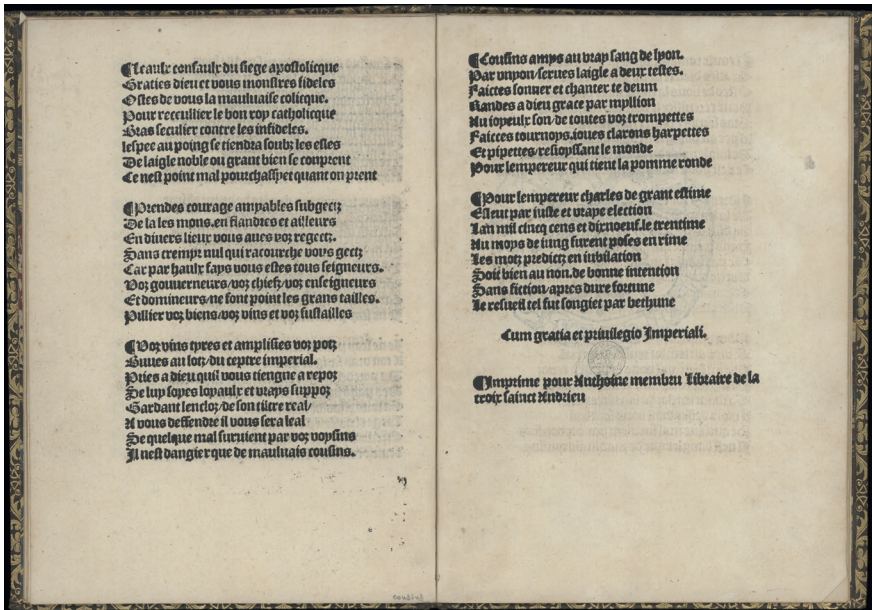 ¶Leaulx consaulx du siege apostolicque
Graties dieu et vous monstres fideles
Ostes de vous la mauluaise colicque.
Pour recculier le bon roy catholicque
Bras seculier contre les infideles.
lespee au poing se tiendra soubz les esles
De laigle noble ou grant bien se conprent
Ce nest point mal pourchassyet quant on prent
¶Prendes courage amyables subgectz
De la les mons.en flandres et ailleurs
En divers lieux vous aues voz regectz.
Sans crempr nul qui racourche voys gectz
Car par haulx fays vous estes tous seigneurs.
Voz gouuerneurs/voz chiefz/voz enseigneurs
Et domineurs/ne font point les grans tailles.
Pillier voz biens/voz vins et voz fustailles
¶Voz vins tyres et amplifies voz potz
Buues au lotz/du ceptre imperial.
Pries a dieu quil vous tiengne a repoz
Se luy soyes loyaulx et vrays suppoz
Gardant lencloz/de son tiltre real/
A vous deffendre il vous sera leal
Se quelque mal suruient par voz voysins
Il nest dangier que de mauluais cousins.
cousins
¶Cousins amys au vray sang de lyon.
Par vnyon/serues laigle a deux testes.
Faictes sonner et chanter te deum
Randes a dieu grace par myllion
Au ioyeulx son/de toutes voz trompettes
Faicces tournoys.ioues clarons harpettes
Et pipettes/resioyssant le monde
Pour lempereur qui tient la pomme ronde
¶Pour lempereur charles de grant estime
Esleut par iuste et vraye election
Lan mil cincq cens et dixnoeuf.le trentime
Au moys de iung furent poses en rime
Les motz predictz en iubilation
Soit bien au non.de bonne intention
Sans fiction/apres dure fortune
Le resueil tel fut songiet par bethune
Cum gratia et priuilegio Imperiali.
¶Imprime pour Anthoine membru Libraire de la
croix sainct Andrieu